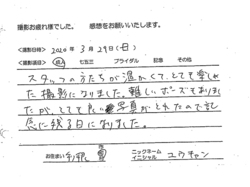 撮影お疲れ様でした。 感想をお願いいたします。
<撮影日時> 2020年3月29日(日)
<撮影項目> 成人 七五三 ブライダル 記念 その他
スタッフの方たちが温かくて、とても楽しめ
た撮影になりました。難しいポーズもありまし
たが、とても良い写真がとれたので記
念に残る日になりました。
お住まい 市 ニックネーム イニシャル ユウキャン